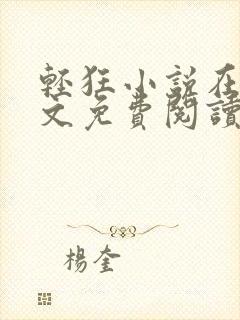 輕狂小說在
文免費閱讀
楊奎